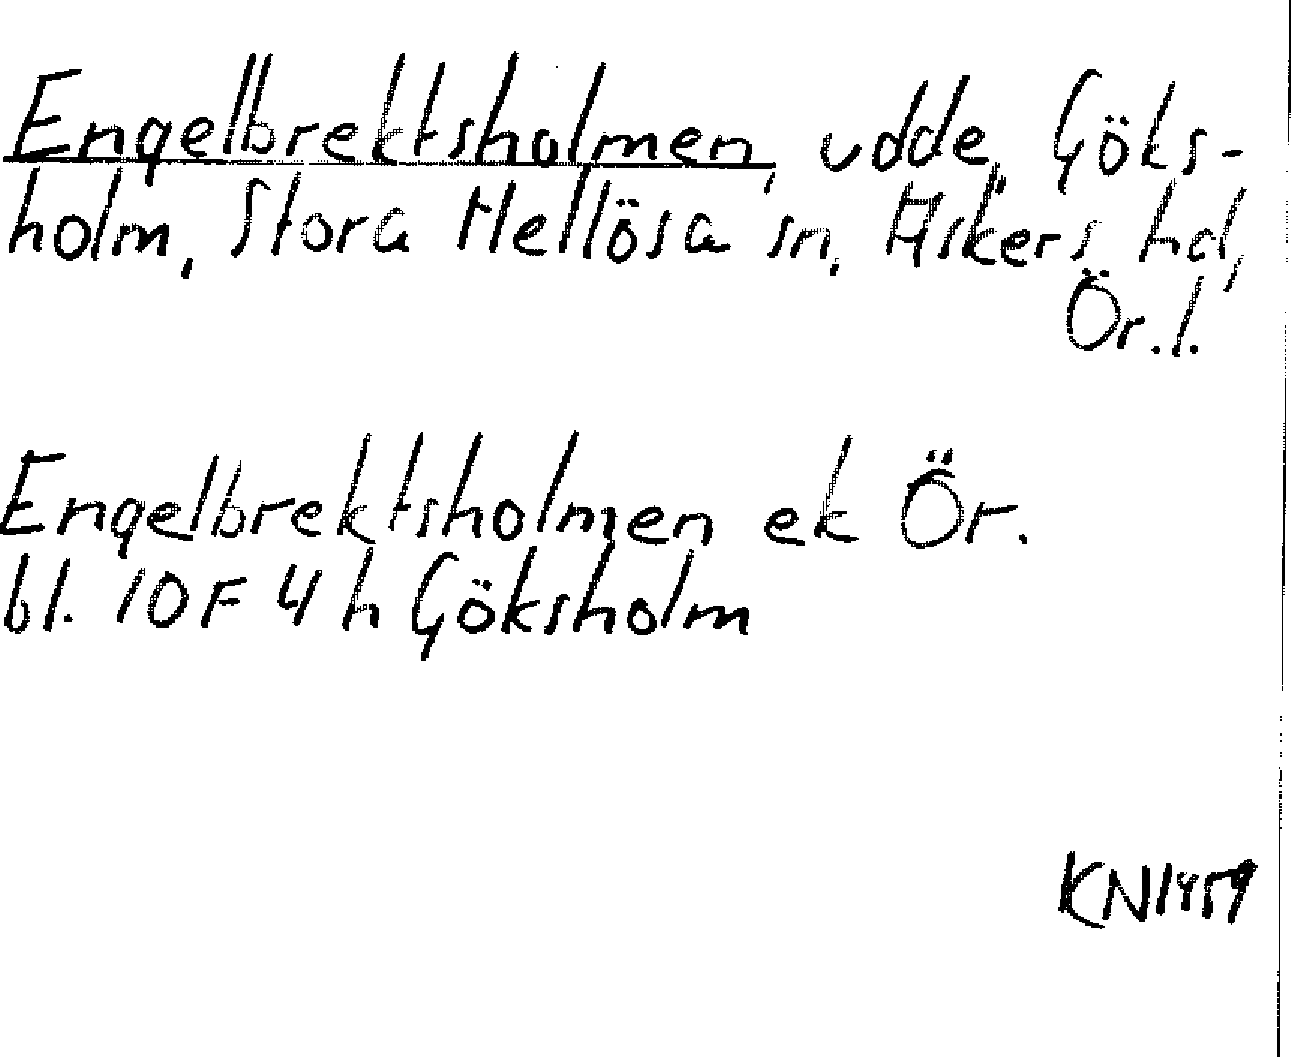 Engelbrektsholmen, udde, Göks-
holm, Stora Mellösa sn, Askers hd,
Ör.l.
Engelbrektsholmen ek Ör.
bl. 10F 4h Göksholm
KN1459